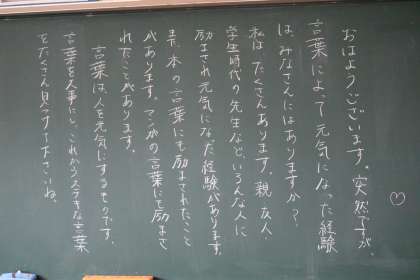 おはようございます。突然ですが、
言葉によって元気になった経験
は、みなさんにはありますか？
私は たくさんあります。親、友人
学生時代の先生など、いろんな人に
励まされ元気になった経験があります。
また、本の言葉にも励まされたこと
があります。マンガの言葉にも励まさ
れたことがあります。
言葉は、人を元気にするものです。
言葉を大事にし、これからステキな言葉
をたくさん見つけて下さいね。